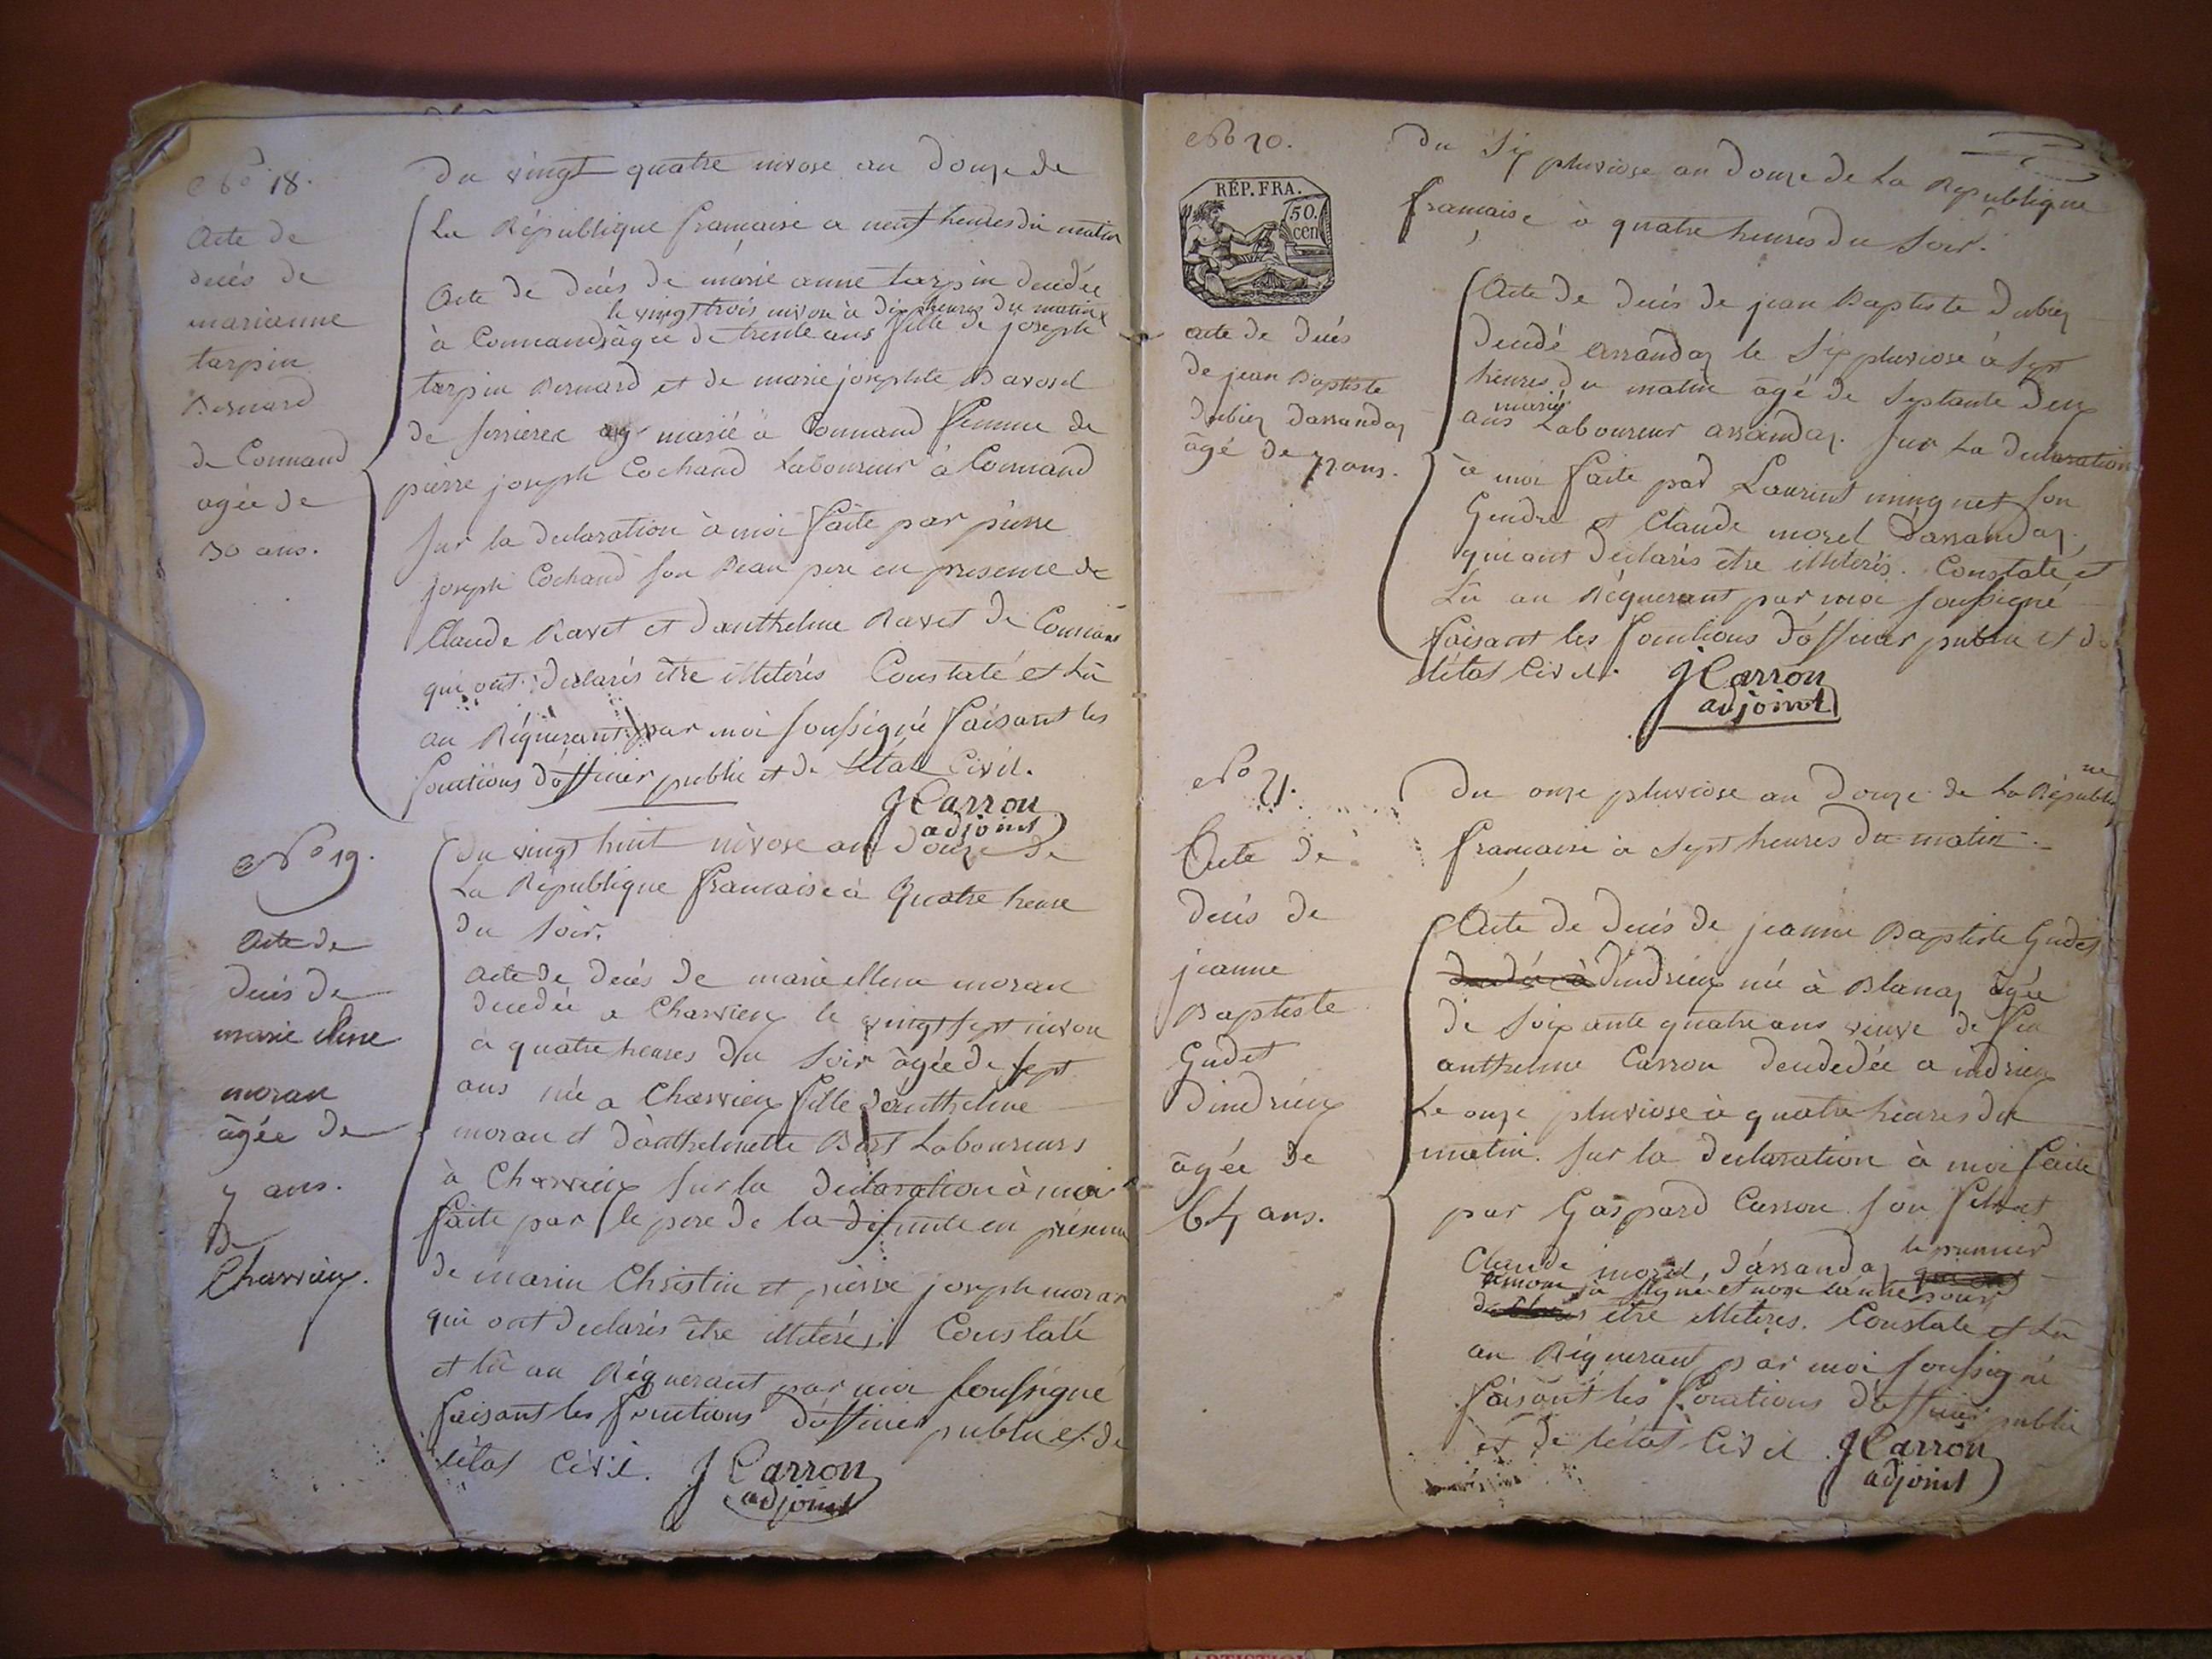 No 18.
Acte de
decés de
marianne
tarpin
Bernard
de Connand
agée de
30 ans.
Du vingt quatre nivose an Douze de
La République francaise a neuf heures du matin
Acte de decés de marie anne tarpin decedée
le vingt trois nivose à dix heures du matin
à Connand agée de trente ans fille de joseph
tarpin Bernard et de marie josephte
de marié à Connand femme de
pierre joseph Cochand Laboureur à Connand
sur la declaration à moi faite par pierre
joseph Cochand son Beau pere en presence de
Claude Ravet et d'anthelme Ravet de Connand
qui ont declarés être illiterés Constaté et Lû
au Réquerant par moi soussigné faisant les
fonctions d'officier public et de l'état Civil.
J Carron
adjoint
No 19.
Acte de
decés de
marie elene
moran
âgée de
7 ans.
De
Charvieux.
Du vingt huit nivose an Douze de
La République francaise à Quatre heure
du soir.
acte de decés de marie ellene moran
decedée a Charvieux le vingt sept nivose
à quatre heures du soir âgée de sept
ans née a Charvieux fille d'anthelme
moran et d'anthelmette Bort Laboureurs
à Charvieux sur la declaration à moi
faite par le pere de la defunte en présence
de marin Christin et pierre joseph moran
qui ont declarés être illiterés Constaté
et lû au Réquerant par moi soussigné
faisant les fonctions d'officier public et de
l'état Civil. J Carron
adjoint
No 20.
RÉP. FRA.
50.
cen
acte de decés
de jean Baptiste
Dubiez Darrandaz
âgé de 72 ans.
Du Six pluviose an Douze de La Republique
francaise à quatre heures du soir.
Acte de decés de jean Baptiste Dubiez
decedé arrandaz le Six pluviose à sept
heures du matin âgé de septante deux
marié
ans Laboureur arrandaz. sur La declaration
à moi faite par Laurent minguet son
Gendre et Claude morel Darrandaz,
qui ont déclarés être illiterés. Constaté et
Lû au Réquerant par moi soussigné
faisant les fonctions d'officier public et de
l'état Civil. J Carron
adjoint
No 21.
Acte de
decés de
jeanne
Baptiste
Gudet
Dindrieux
âgée de
64 ans.
Du onze pluviose an Douze de La République
francaise à sept heures du matin.
Acte de decés de jeanne Baptiste Gudet
decedée à Dindrieux née à Blanaz âgée
de soixante quatre ans veuve de feu
anthelme Carron decededée a indrieux
Le onze pluviose à quatre heures du
matin. sur la declaration à moi faite
par Gaspard Carron son fils et
Claude morel, d'arrandaz le premier
temoin à signé et non l'autre pour
être illiteres. Constaté et Lû
au Réquerant par moi soussigné
faisant les fonctions d'officier public
et de l'état Civil J Carron
adjoint